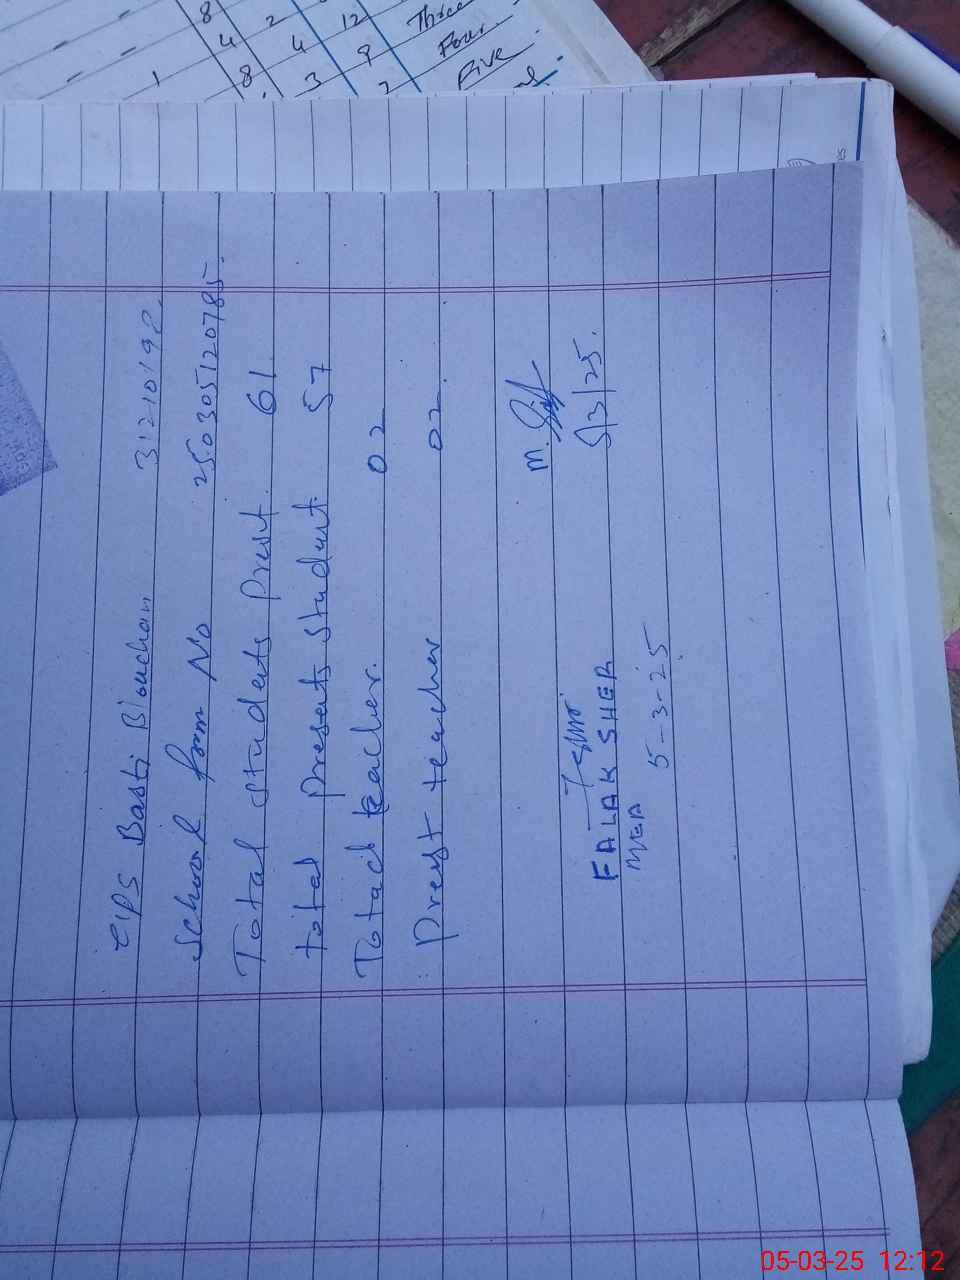 8 2 12 Three
- - 4 4 9 Four
- - 1 8 3 2 Five
GPS Basti Blouchan 31210198
School from No 250305120785
Total students Prest 61
total presents student 57
Totad teacher. 02
Prest teacher 02
M.
5/3/25.
FALAK SHER
MEA
5-3-25
05-03-25 12:12